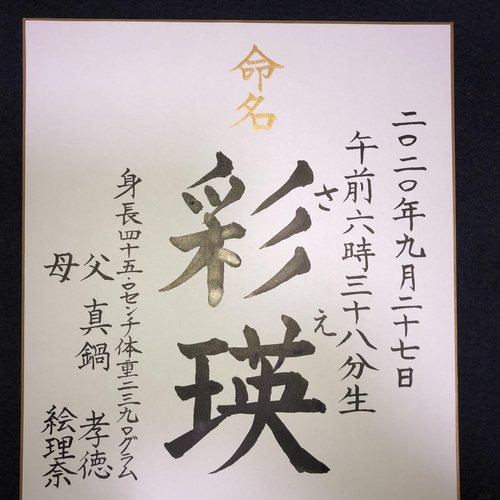 命名
二〇二〇年九月二十七日
午前六時三十八分生
彩瑛
さえ
身長四十五・〇センチ体重二三九〇グラム
父 真鍋 孝徳
母 絵理奈